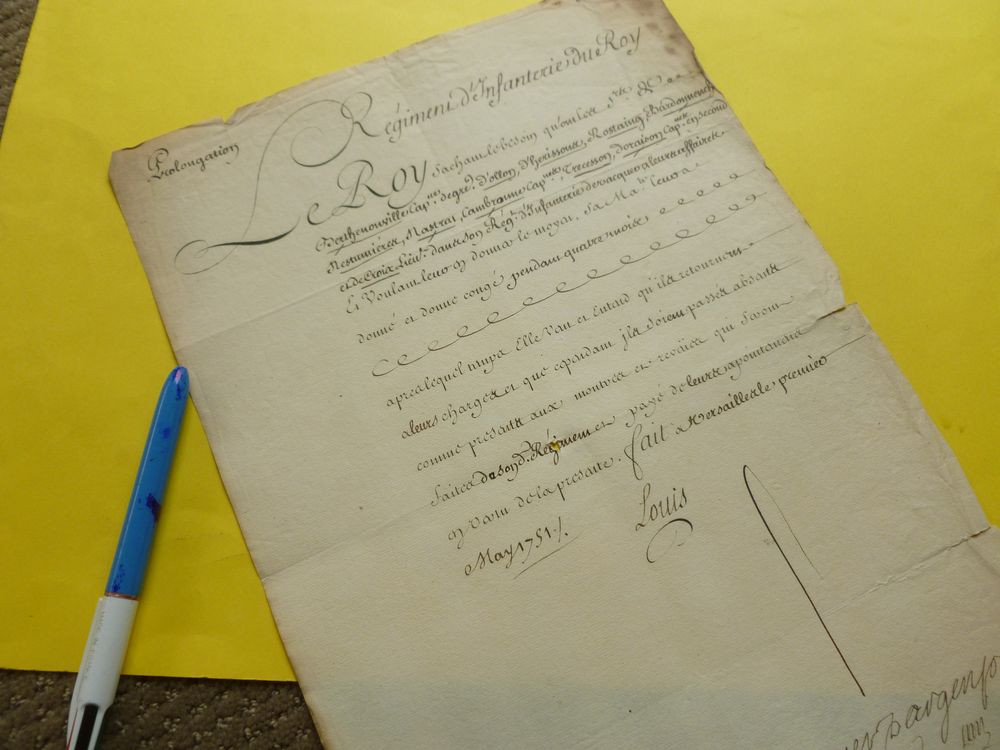 Régiment d'Infanterie du Roy
Prolongation
Le Roy Sachant le besoin qu'ont les Srs. de
Berthenonville Cap.nes degré d'ollon, d'herissons, Rostaing, Bardonnench
Nestumiéres, Nastrac, Cambronne Cap.nes Trecesson, Doraison Cap.nes en second
et de Croix Lieut. dans son Régt. d'Infanterie de vacquer a leurs affaires
Et Voulant leur en donner le moyen, Sa Maté. leur a
donné et donne congé pendant quatre mois
apres lequel temps Elle Veut et Entend qu'ils retournent
a leurs charges et que cependant ils soient passés absents
comme présents aux montres et reveües qui seront
faites de son d. Régiment et payé de leurs apointements
en vertu de la presente. fait a Versailles le premier
May 1751.
Louis